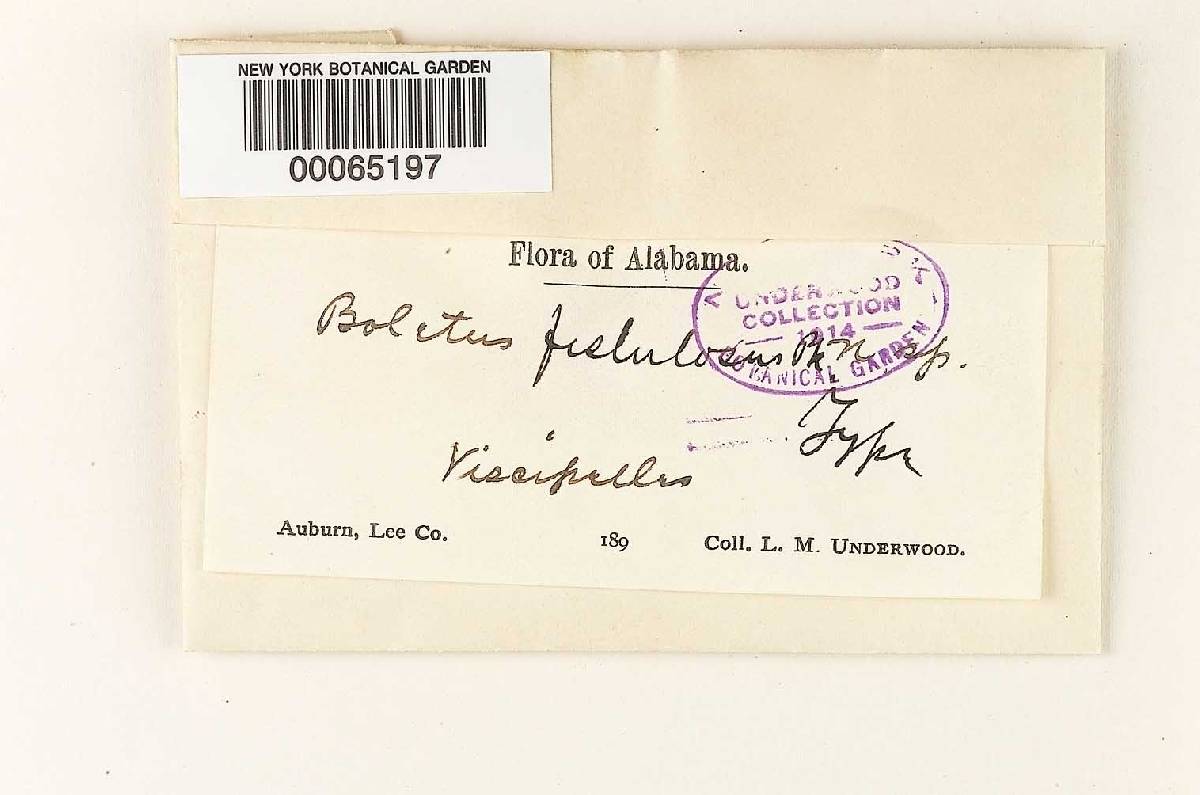 NEW YORK BOTANICAL GARDEN
00065197
Flora of Alabama.
UNDERWOOD
COLLECTION
1914
BOTANICAL GARDEN
Boletus fistulosus Pk n. sp.
Type
Viscipelles
Auburn, Lee Co. 189 Coll. L. M. UNDERWOOD.